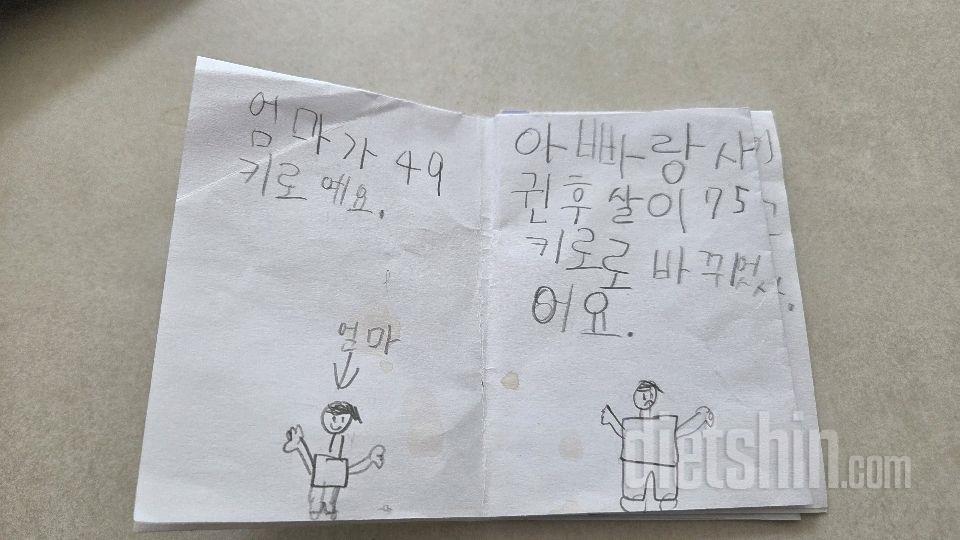 엄마가 49
키로예요.
엄마
아빠랑 사
귄 후 살이 75
키로로 바뀌었
어요.
dietshin.com